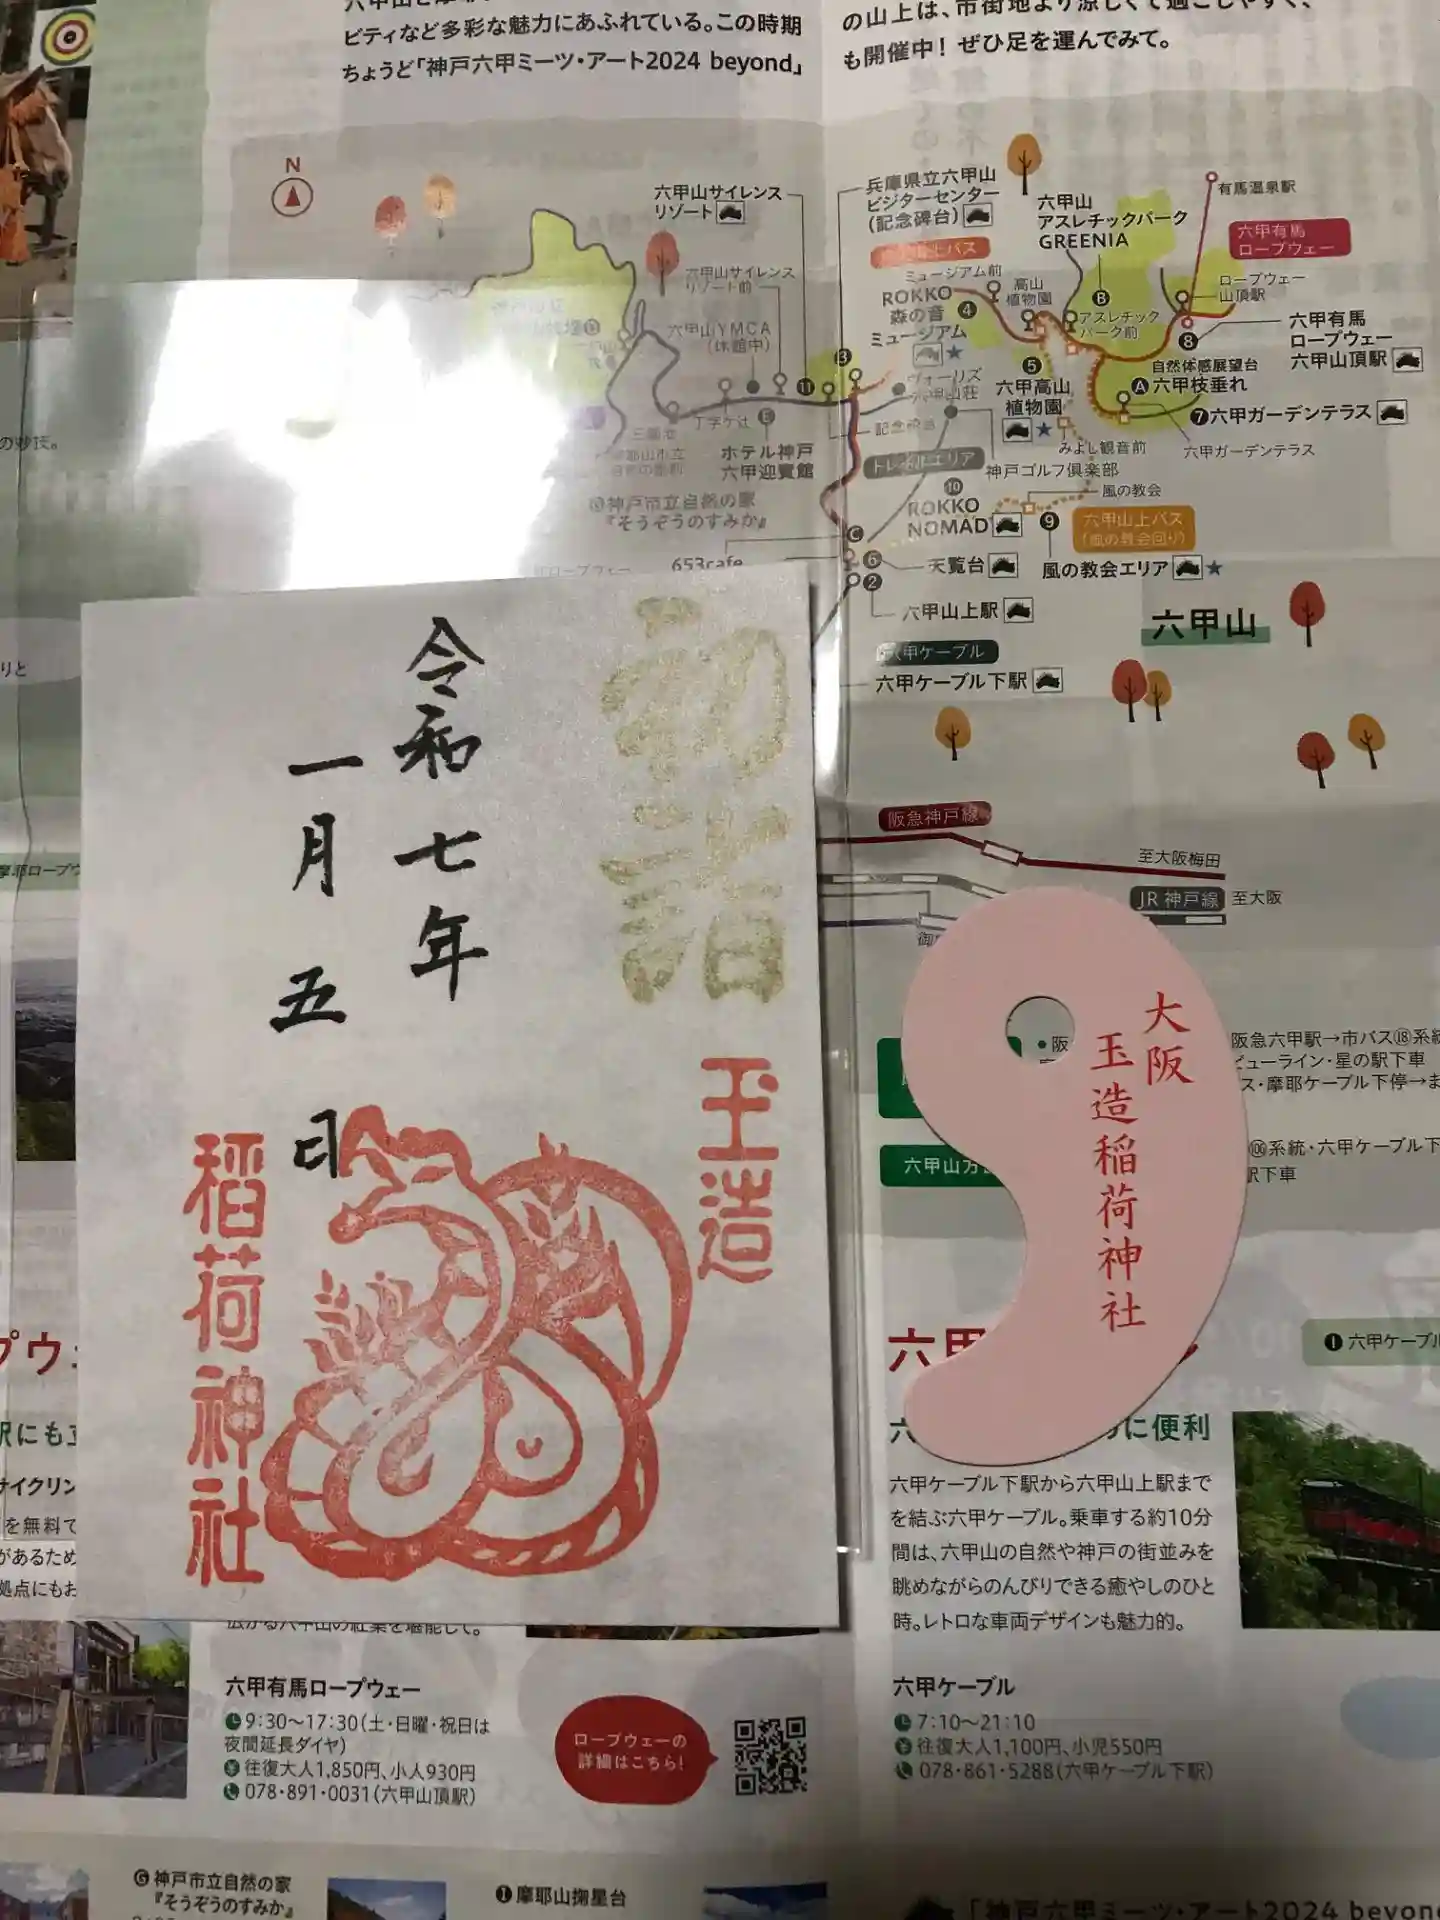 ビティなど多彩な魅力にあふれている。この時期
ちょうど「神戸六甲ミーツ・アート2024 beyond」
の山上は、市街地より涼しくて過ごしやすく、
も開催中！ ぜひ足を運んでみて。
N
六甲山サイレンス
リゾート
六甲山サイレンス
リゾート前
六甲山YMCA
(休館中)
兵庫県立六甲山
ビジターセンター
(記念碑台)
六甲山
アスレチックパーク
GREENIA
有馬温泉駅
六甲有馬
ロープウェー
ロープウェー
山頂駅
ミュージアム前
ROKKO
森の音
ミュージアム
高山
植物園
アスレチック
パーク前
六甲有馬
ロープウェー
六甲山頂駅
自然体感展望台
六甲枝垂れ
六甲高山
植物園
六甲ガーデンテラス
六甲ガーデンテラス
みよし観音前
丁字ケ辻
ホテル神戸
六甲迎賓館
神戸ゴルフ倶楽部
風の教会
ROKKO
NOMAD
六甲山上バス
(風の教会回り)
神戸市立自然の家
『そうぞうのすみか』
653cafe
天覧台
風の教会エリア
六甲山上駅
六甲山
六甲ケーブル下駅
阪急神戸線
至大阪梅田
JR 神戸線
至大阪
初詣
令和七年
一月五日
玉造
稲荷神社
大阪
玉造稲荷神社
阪急六甲駅→市バス⑱系統
ス・摩耶ケーブル下停→ま
系統・六甲ケーブル下
駅下車
六甲ケーブル
に便利
六甲ケーブル下駅から六甲山上駅まで
を結ぶ六甲ケーブル。乗車する約10分
間は、六甲山の自然や神戸の街並みを
眺めながらのんびりできる癒やしのひと
時。レトロな車両デザインも魅力的。
六甲有馬ロープウェー
9:30〜17:30(土・日曜・祝日は
夜間延長ダイヤ)
往復大人1,850円、小人930円
078・891・0031(六甲山頂駅)
ロープウェーの
詳細はこちら！
六甲ケーブル
7:10〜21:10
往復大人1,100円、小児550円
078・861・5288(六甲ケーブル下駅)
G 神戸市立自然の家
『そうぞうのすみか』
I 摩耶山掬星台
「神戸六甲ミーツ・アート2024 beyond